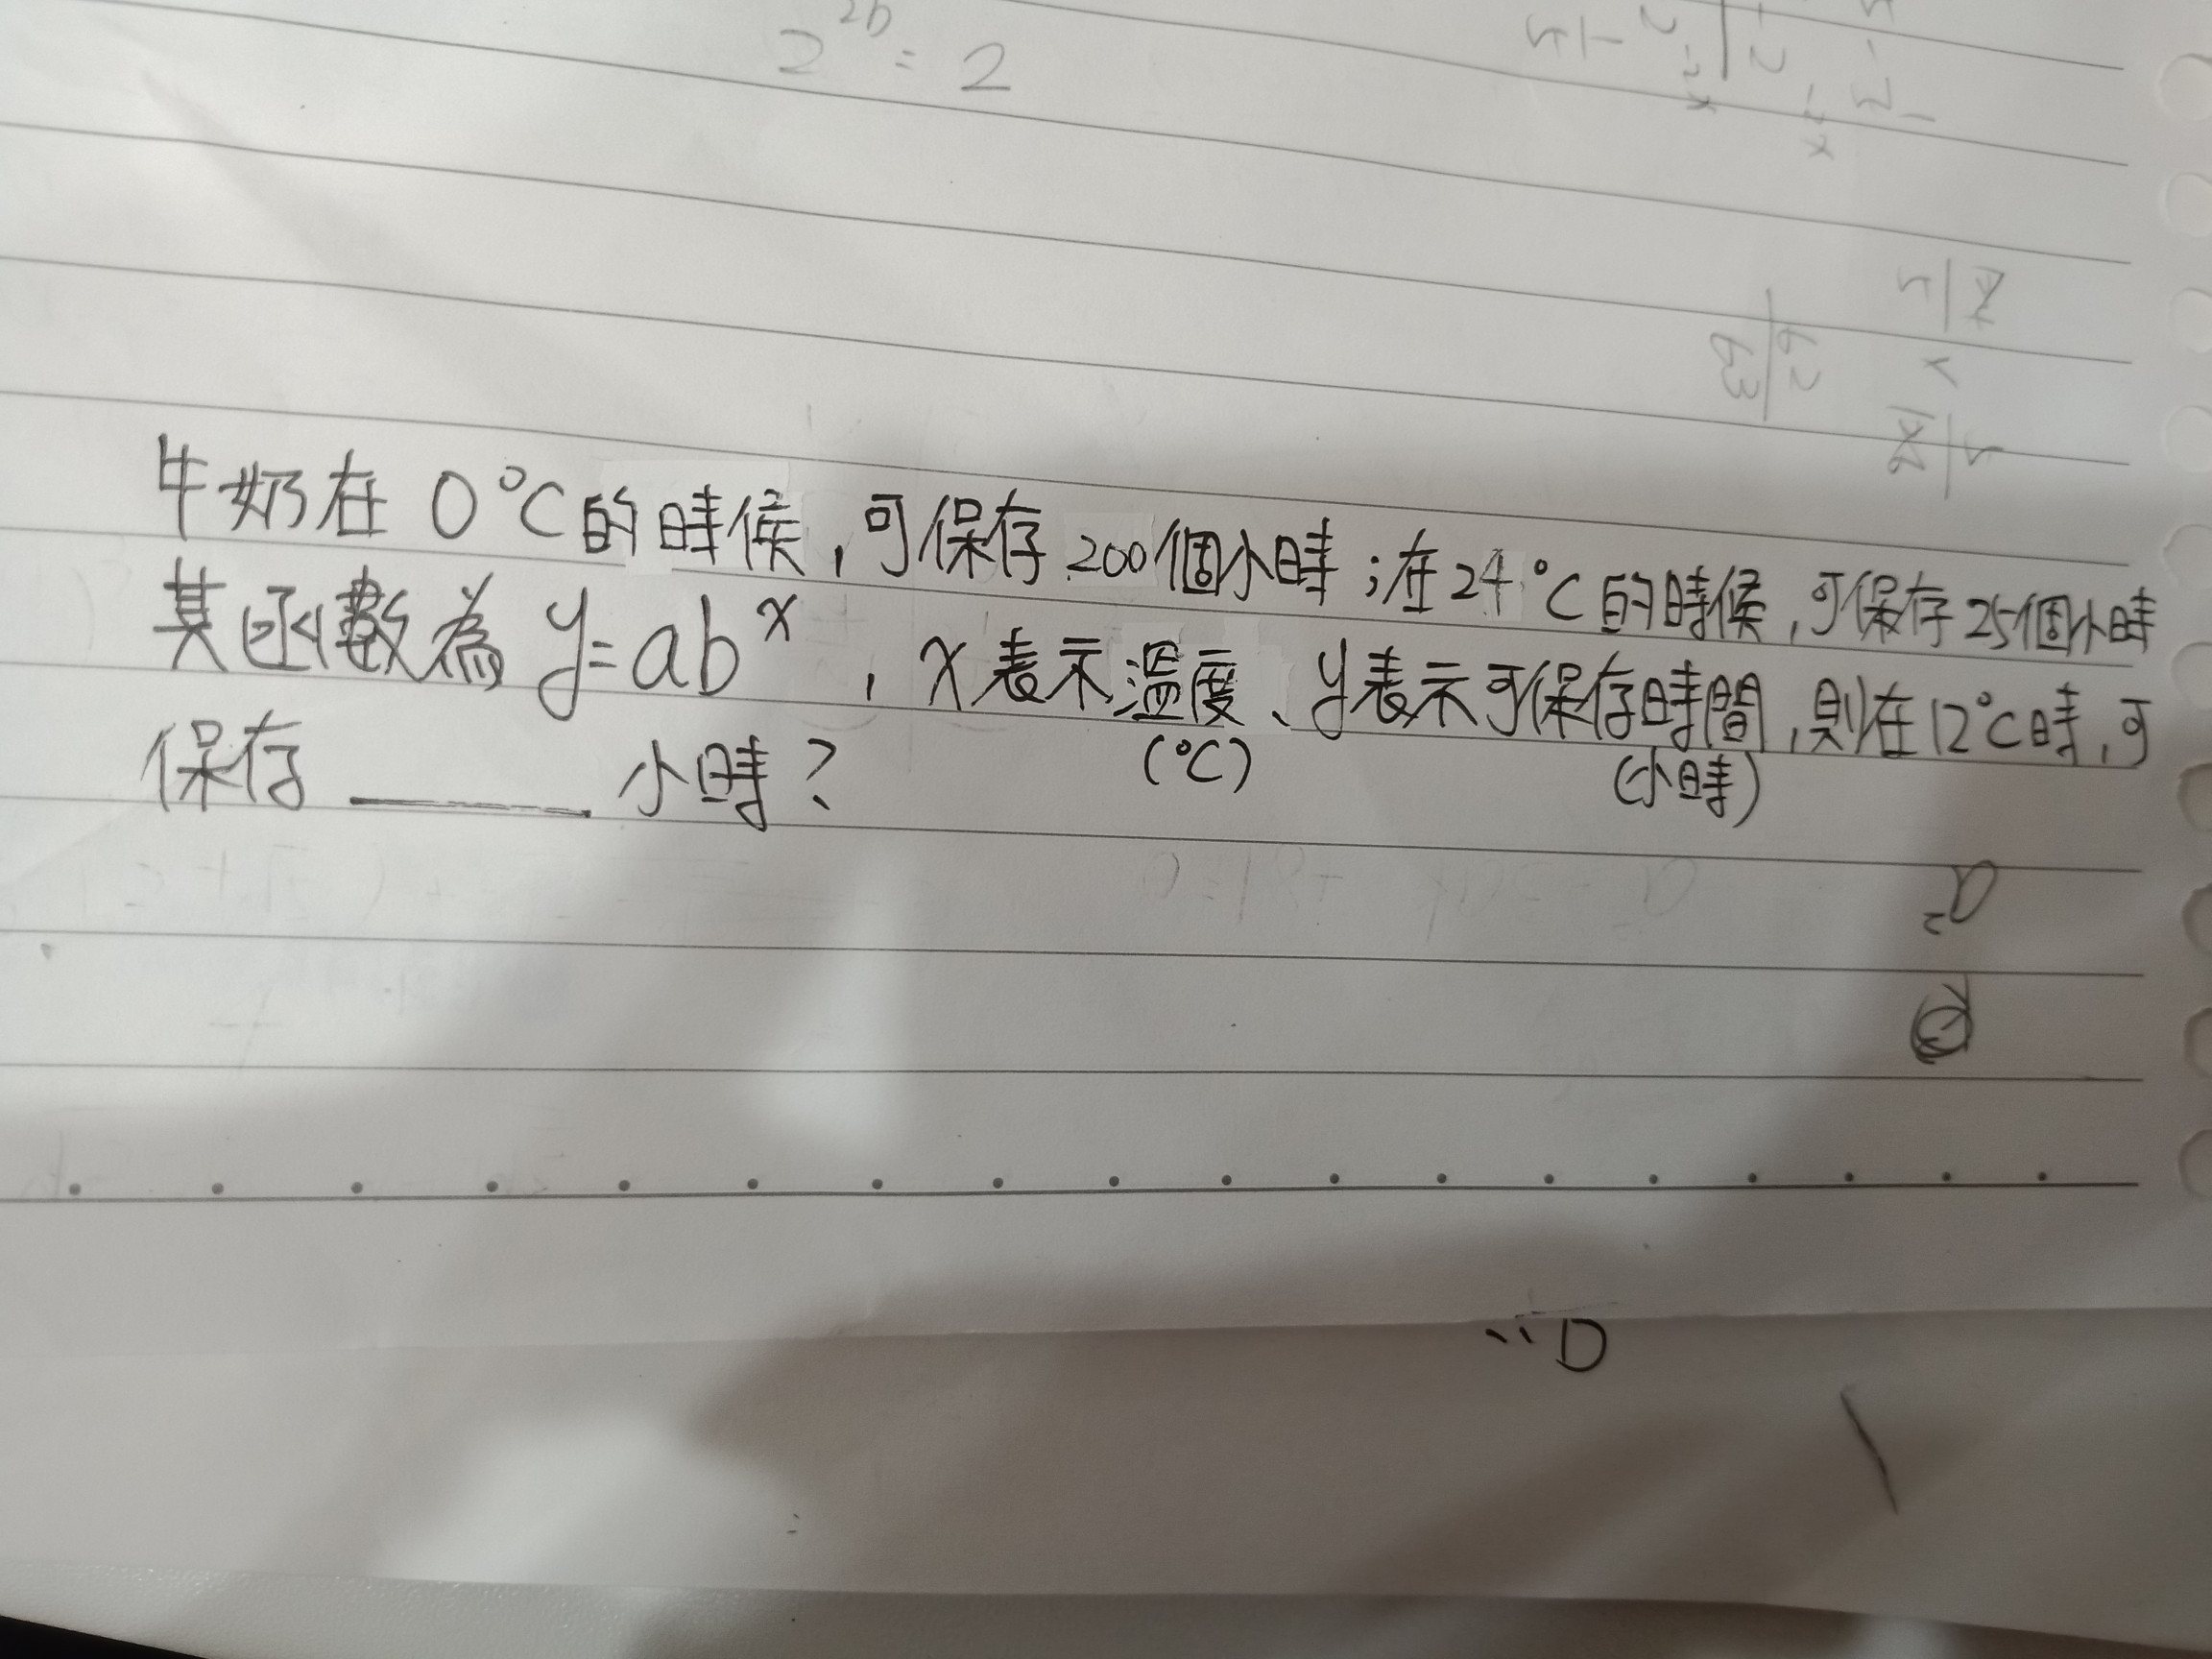 2^2b = 2
牛奶在 0°C的時候,可保存200個小時;在24°C的時候,可保存25個小時
其函數為 y=ab^x , x表示溫度、y表示可保存時間,則在12°C時,可
(°C) (小時)
保存 ______ 小時?